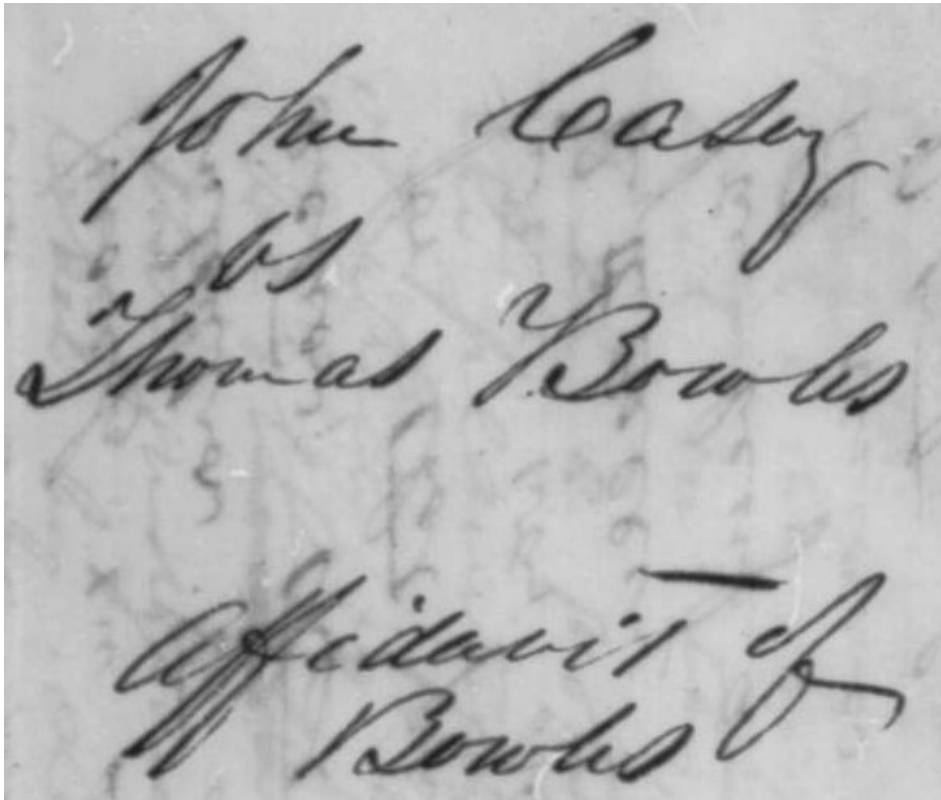 John Casey
vs
Thomas Bowles
affidavit of
Bowles